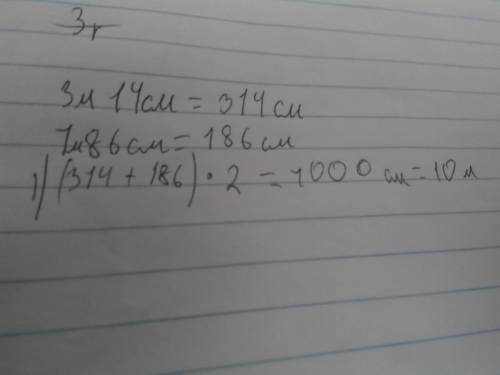 3м 14см = 314см
1м86см = 186см
1) (314 + 186) · 2 = 1000 см = 10 м